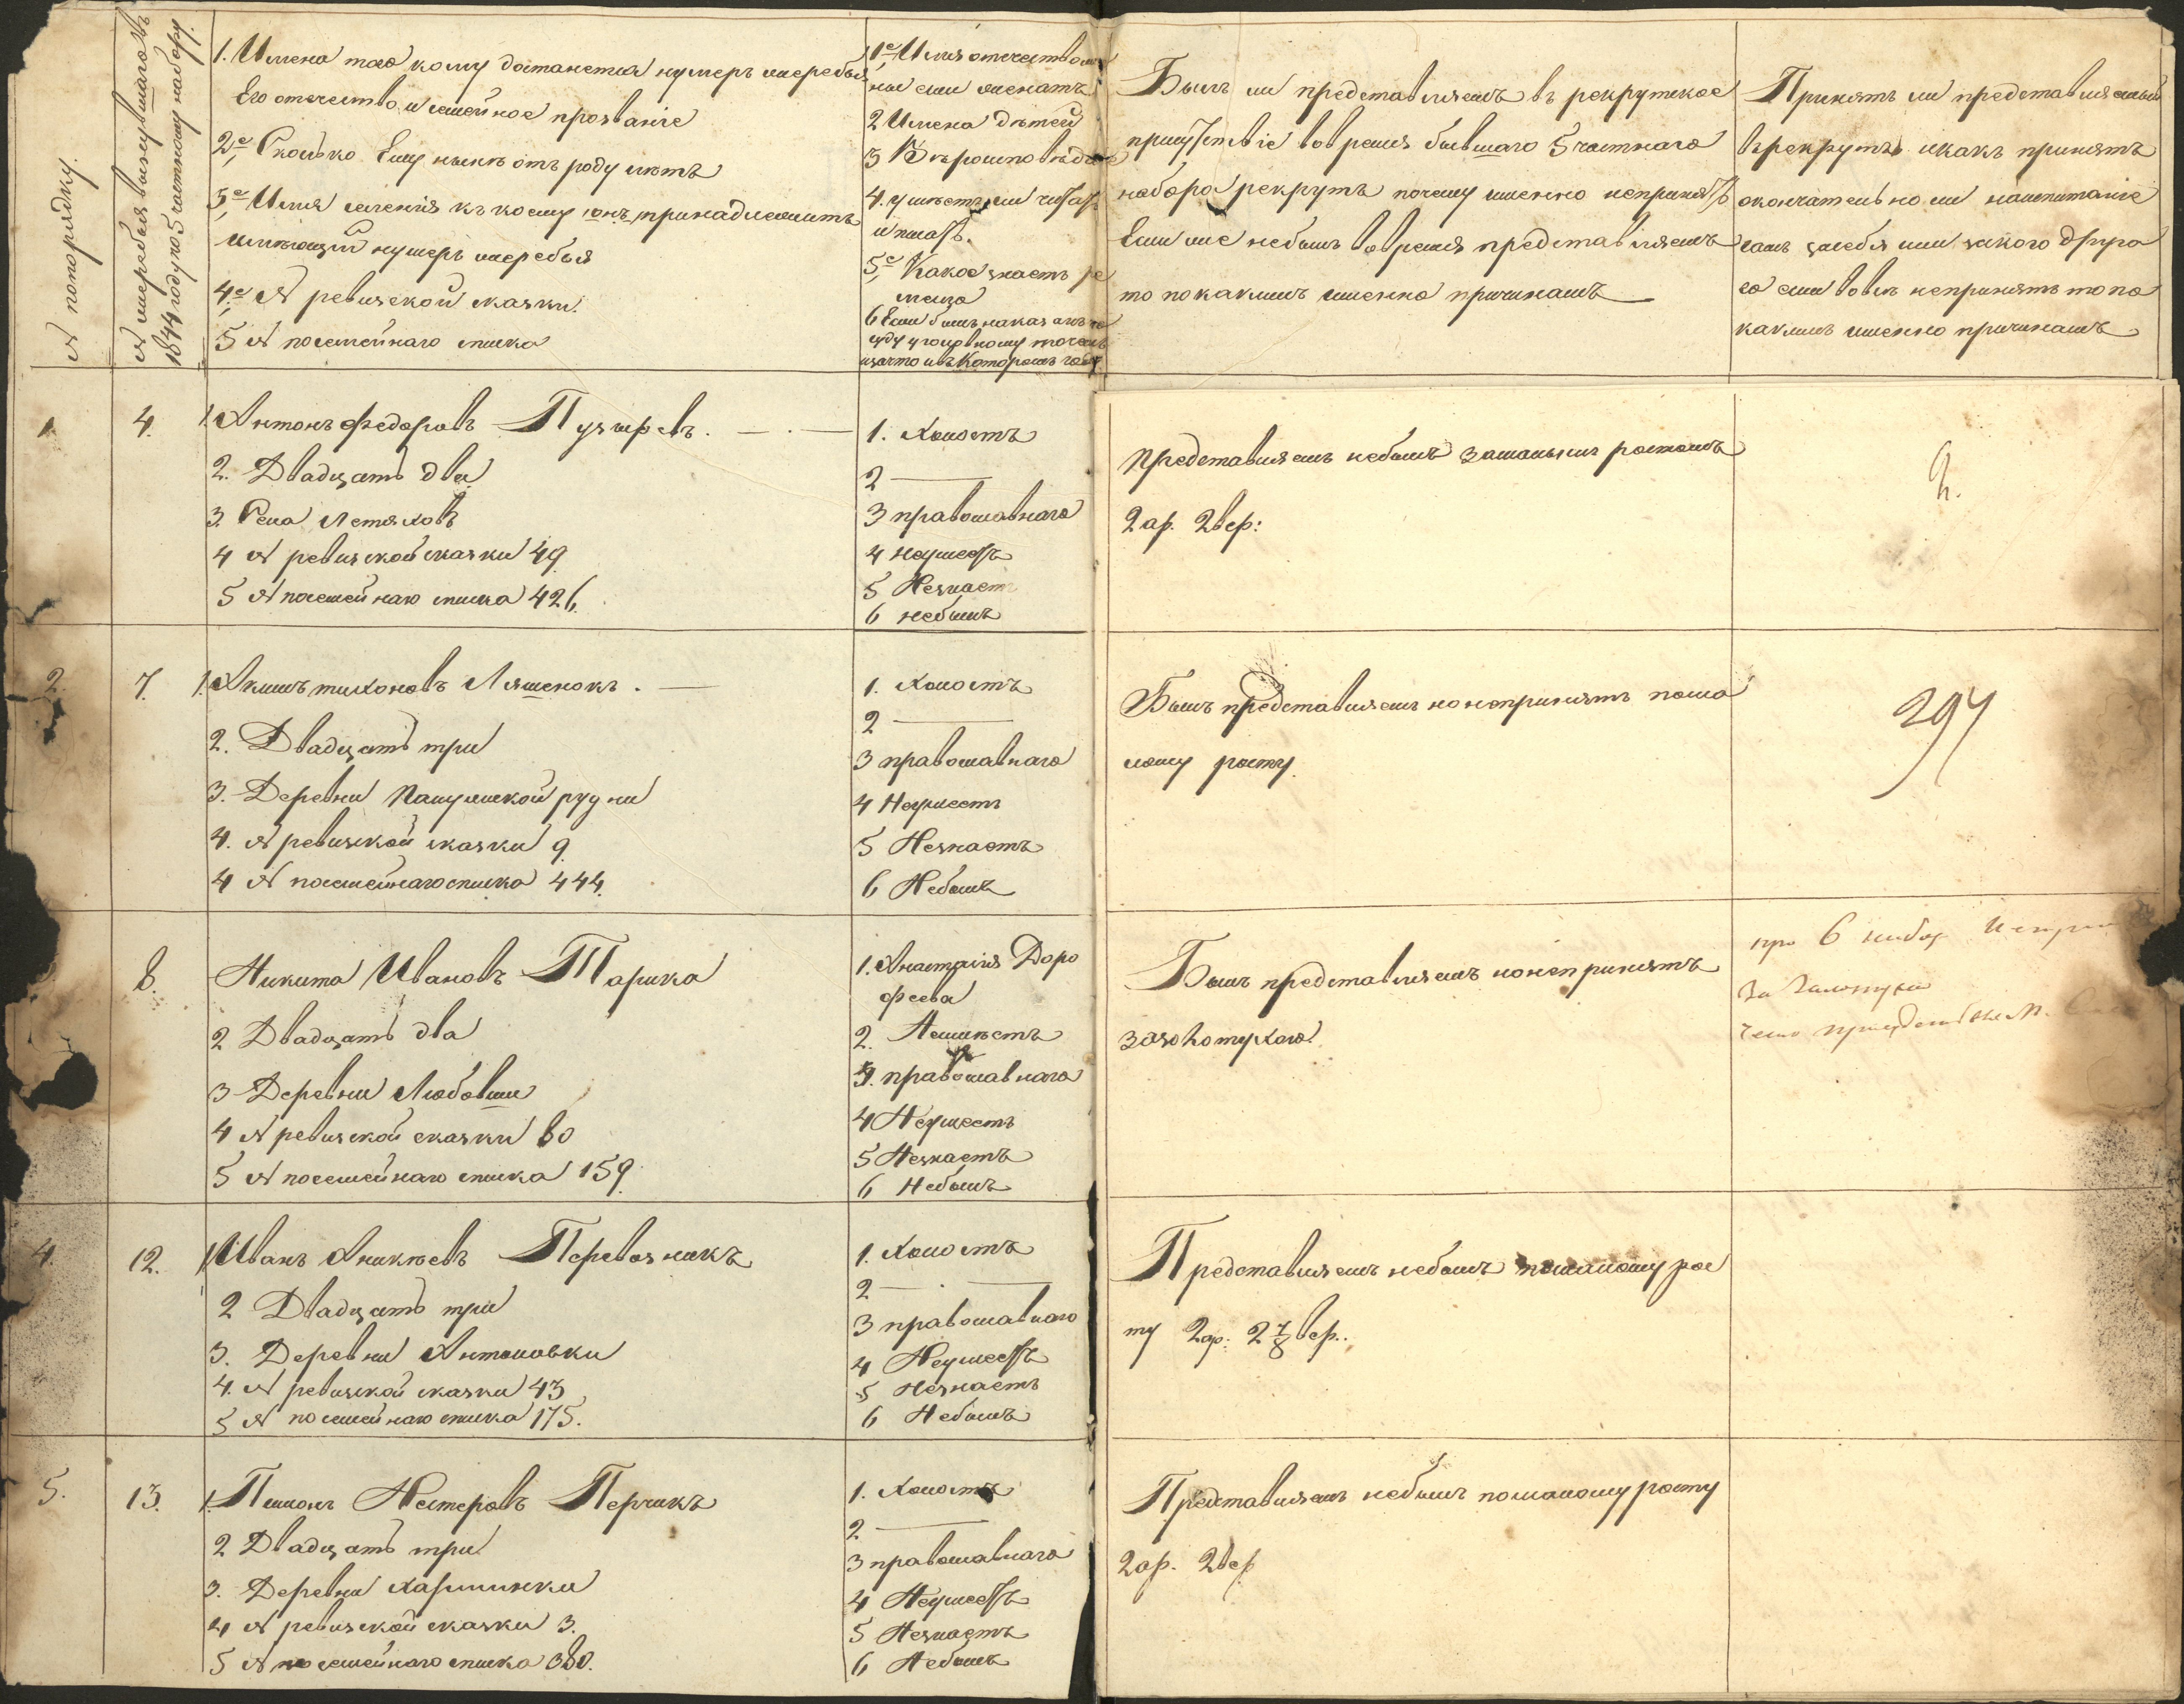 № по порядку.
№ жеребья вынувшаго въ
1844 году по 5 частному набору.
1. Имена того кому достанется нумеръ жеребья
Его отечество и семейное прозваніе
2е, Сколько Ему нынѣ отъ роду лѣтъ
3е, Имя селенія къ коему онъ принадлежитъ
имѣющій нумеръ жеребья
4е, № ревизской сказки.
5 № посемейнаго списка
1е, Имя отечество
или женатъ
2 Имена дѣтей
3 Вѣроисповѣд
4. умѣетъ ли читать
и писать.
5е, Какое знаетъ ре
месло
6 Если былъ наказанъ по
суду уголовному то
за что и въ которомъ году.
Былъ ли представляемъ въ рекрутское
присутствіе во время бывшаго 5 частнаго
набора рекрутъ почему именно непринятъ
Если же небылъ во время представляемъ
то по какимъ именно причинамъ
Принятъ ли представляемый
в рекруты и какъ принятъ
окончательно ли на испытаніе
самъ за себя или за кого друга
го если вовсе непринятъ то по
какимъ именно причинамъ
1
4.
1. Антонъ Федоровъ Пузыревъ.
2. Двадцать два
3. Села Летяховъ
4 № ревизской сказки 49
5 № посемейнаго списка 426.
1. Холостъ
2
3 православнаго
4 неумеетъ
5 Незнаетъ
6 небылъ
Представляемъ небылъ за малымъ ростомъ
2 ар. 2 вер:
2.
7.
1. Акимъ Тихоновъ Ляшенокъ.
2. Двадцать три
3. Деревни Папулинской рудни
4. № ревизской сказки 9
4 № посемейнаго списка 444.
1. Холостъ
2
3 православнаго
4 Неумеетъ
5 Незнаетъ
6 Небылъ
Былъ представляемъ но непринятъ по ма
лому росту.
294
8.
Никита Ивановъ Тарика
2 Двадцать два
3 Деревни Любовши
4 № ревизской сказки 80
5 № посемейнаго списка 159
1. Анастасія Доро
феева
2. Неимѣетъ
3. православнаго
4 Неумеетъ
5 Незнаетъ
6 Небылъ
Былъ представляемъ но непринятъ
за золотухою
при 6 набор
За Золотухи
4.
12.
1. Иванъ Аникѣевъ Перевозникъ
2 Двадцать три
3. Деревни Антоновки
4. № ревизской сказки 43
5 № посемейнаго списка 175.
1. Холостъ
2
3 православнаго
4 Неумеетъ
5 Незнаетъ
6 Небылъ
Представляемъ небылъ по малому рос
ту 2 ар: 2 7/8 вер.
5.
13.
1. Пименъ Нестеровъ Перчикъ
2 Двадцать три
3. Деревни
4 № ревизской сказки 3.
5 № посемейнаго списка 380.
1. Холостъ
2
3 православнаго
4 Неумеетъ
5 Незнаетъ
6 Небылъ
Представляемъ небылъ по малому росту
2 ар. 2 вер